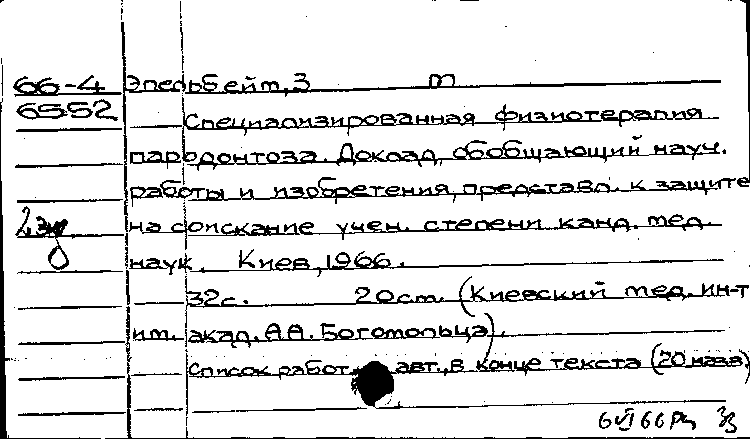 66-4 Эпельбейт, З m
6552
Специализированная физиотерапия
пародонтоза. Доклад, обобщающий науч.
работы и изобретения, представл. к защите
2 эк
на соискание учен. степени канд. мед.
наук. Киев, 1966.
32с. 20см. (Киевский мед. ин-т
им. акад. А.А. Богомольца).
Список работ авт., в конце текста (20 назв)
6 VI 66